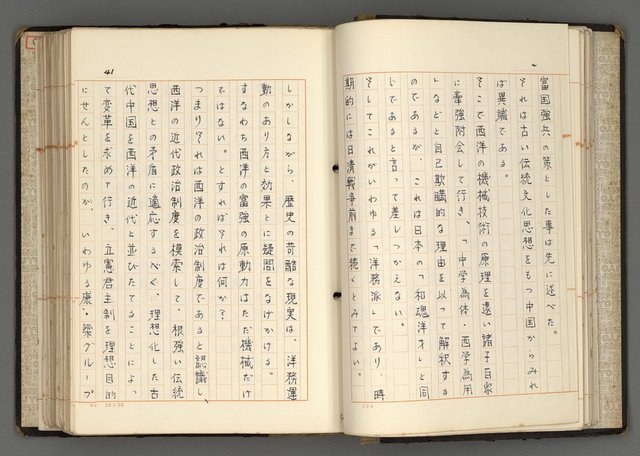 富国強兵の策とした事は先に述べた。
それは古い伝統文化思想をもつ中国からみれ
ば異端である。
そこで西洋の機械技術の原理を遠い諸子百家
に牽強附会して行き、「中学為体・西学為用」
などと自己欺瞞的な理由を以って解釈する
のであるが、これは日本の「和魂洋才」と同
じであると言って差しつかえない。
そしてこれがいわゆる「洋務派」であり、時
期的には日清戦争前まで続くとみてよい。
41
しかしながら、歴史の苛酷な現実は、洋務運
動のあり方と効果とに疑問をなげかける。
すなわち西洋の富強の原動力はただ機械だけ
ではない。とすればそれは何か?
つまりそれは西洋の政治制度であると認識し、
西洋の近代政治制度を模索して、根強い伝統
思想との矛盾に適応するべく、理想化した古
代中国を西洋の近代と並びたてることによっ
て変革を求めて行き、立憲君主制を理想目的
にせんとしたのが、いわゆる康・梁グループ